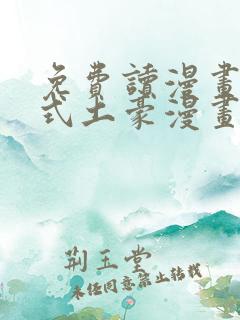 免費讀漫畫
式土豪漫畫
荆玉堂
未经同意禁止转载